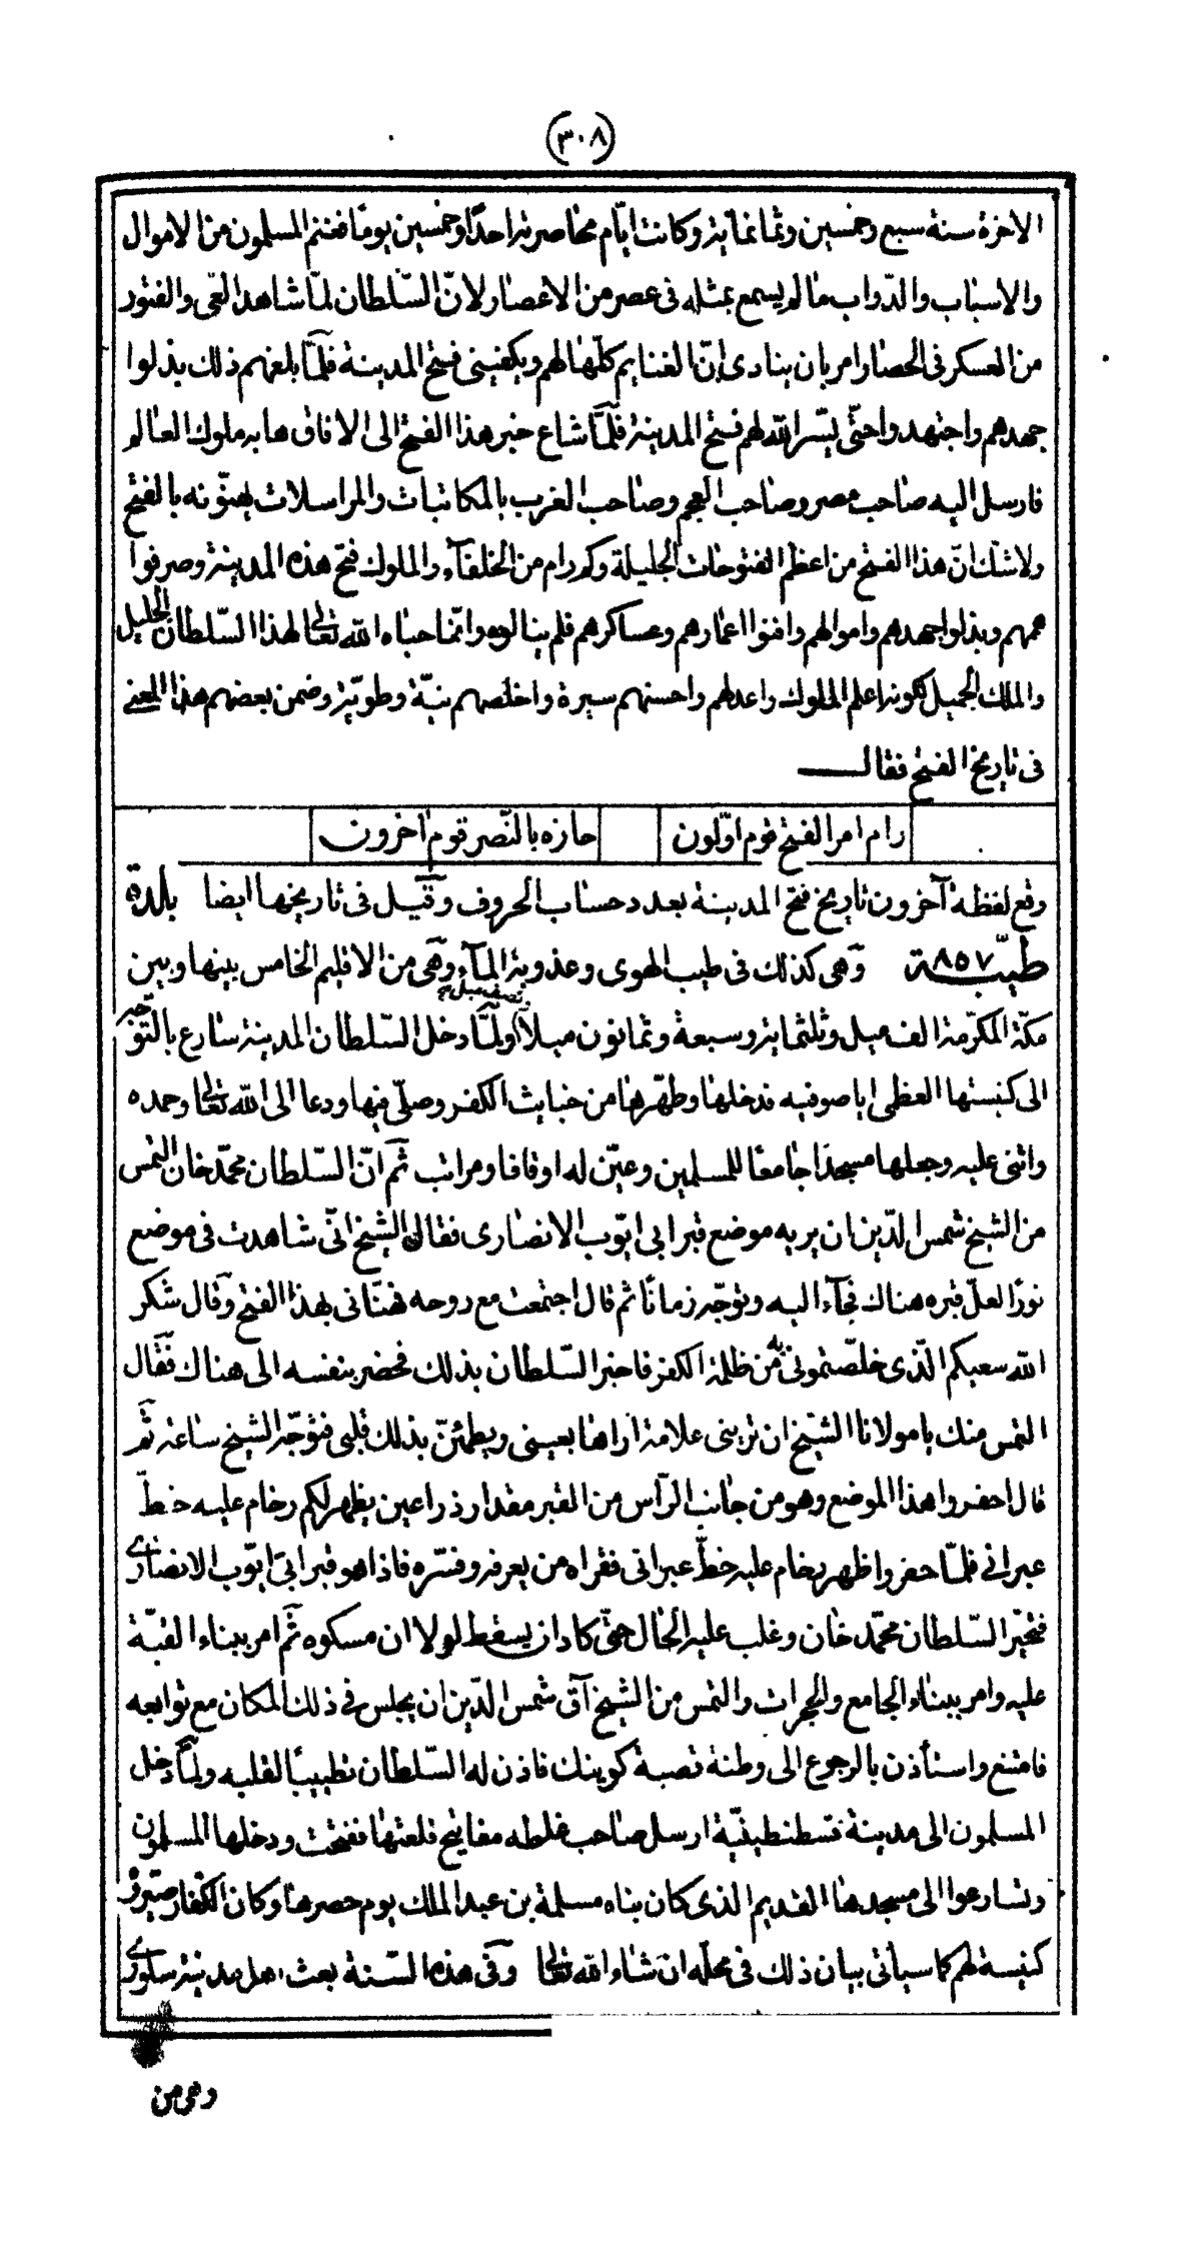 (٣٠٨)
الاخرة سنة سبع وخمسين وثمانمأية وكانت ايّام محاصرته احدًا وخمسين يومًا فغنم المسلمون من الاموال
والاسباب والدّواب ما لم يسمع بمثله فى عصر من الاعصار لانّ السّلطان لمّا شاهد العىّ والفتور
من العسكر فى الحصار امر بان ينادى انّ الغنايم كلّها لهم ويكفينى فتح المدينة فلمّا بلغهم ذلك بذلوا
جهدهم واجتهدوا حتّى يسّر الله لهم فتح المدينة فلمّا شاع خبر هذا الفتح الى الافاق هابه ملوك العالم
فارسل اليه صاحب مصر وصاحب العجم وصاحب الغرب بالمكاتبات والمراسلات يهنوّنه بالفتح
ولا شكّ انّ هذا الفتح من اعظم الفتوحات الجليلة وكم رام من الخلفآء والملوك فتح هذه المدينة وصرفوا
هممهم وبذلوا جهدهم واموالهم وافنوا اعمارهم وعساكرهم فلم ينالوه وانّما حباه الله تعالى لهذا السّلطان الجليل
والملك الجميل لكونه اعلم الملوك واعدلهم واحسنهم سيرة واخلصهم نيّة وطويّة وضمن بعضهم هذا المعنى
فى تاريخ الفتح فقال
رام امر الفتح قوم اوّلون حازه بالنّصر قوم اخرون
وقع لفظة آخرون تاريخ فتح المدينة بعدد حساب الحروف وقيل فى تاريخها ايضا بلدة
طيّبة ٨٥٧ وهى كذلك فى طيب الهوى وعذوبة المآء وهى من الاقليم الخامس بينها وبين
مكّة المكرّمة الف ميل وثلثماية وسبعة وثمانون ميلاً ونصف ميل ولمّا دخل السّلطان المدينة سارع بالتّوجّه
الى كنيستها العظمى اياصوفيه فدخلها وطهّرها من خبايث الكفر وصلّى فيها ودعا الى الله تعالى وحمده
واثنى عليه وجعلها مسجدًا جامعًا للمسلمين وعيّن له اوقافا ومراتب ثم انّ السّلطان محمّد خان التمس
من الشيخ شمس الدّين ان يريه موضع قبر ابى ايّوب الانصارى فقال الشيخ انّى شاهدت فى موضع
نورًا لعلّ قبره هناك فجآء اليه وتوجّه زمانًا ثم قال اجتمعت مع روحه فهنّانى بهذا الفتح وقال شكر
الله سعيكم الّذى خلّصتمونى به من ظلمة الكفر فاخبر السّلطان بذلك فحضر بنفسه الى هناك فقال
التمس منك يا مولانا الشيخ ان ترينى علامة اراها بعينى ويطمئنّ بذلك قلبى فتوجّه الشيخ ساعة ثم
قال احفروا هذا الموضع وهو من جانب الرّأس من القبر مقدار ذراعين يظهر لكم رخام عليه خطّ
عبرانى فلمّا حفروا ظهر رخام عليه خطّ عبرانى فقراه من يعرفه وفسّره فاذا هو قبر ابى ايّوب الانصارى
فتحيّر السّلطان محمّد خان وغلب عليه الحال حتّى كاد ان يسقط لولا ان مسكوه ثم امر ببناء القبّة
عليه وامر ببناء الجامع والحجرات والتمس من الشيخ آق شمس الدّين ان يجلس فى ذلك المكان مع توابعه
فامتنع واستأذن بالرجوع الى وطنة قصبة كوينك فاذن له السّلطان تطييبًا لقلبه ولمّا دخل
المسلمون الى مدينة قسطنطينيّة ارسل صاحب غلطه مفاتيح قلعتها ففتحت ودخلها المسلمون
وتسارعوا الى مسجدها القديم الذى كان بناه مسلمة بن عبد الملك يوم حصرها وكان الكفّار صيّروه
كنيسة لهم كما سيأتى بيان ذلك فى محلّه ان شاء الله تعالى وفى هذه السّنة بعث اهل مدينة سلورى
وهى من